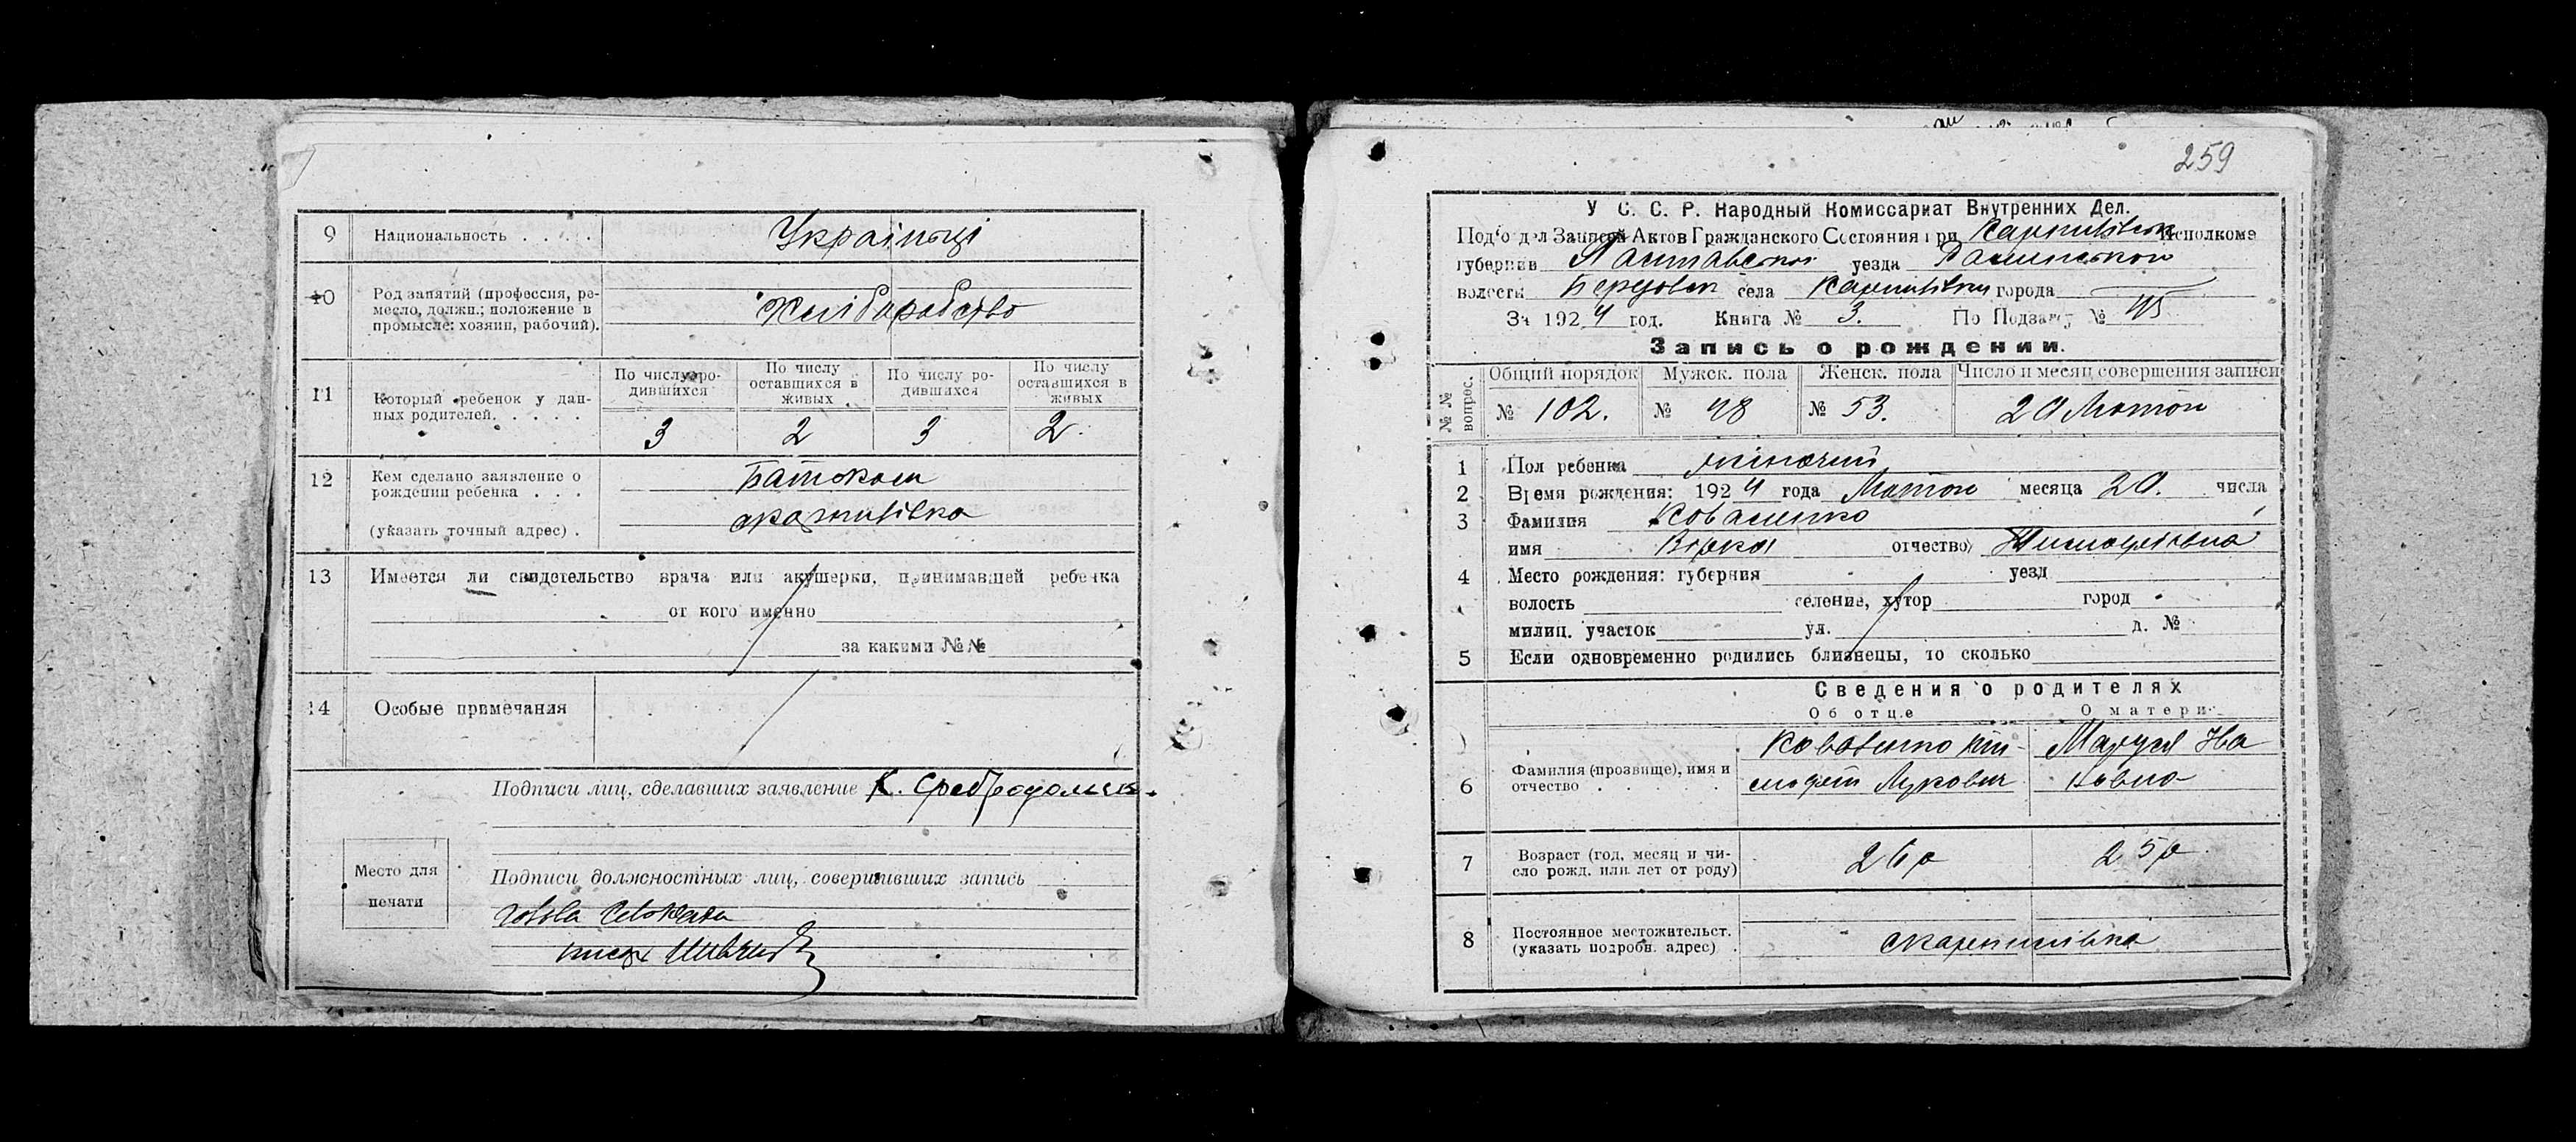 9 Национальность . . . . . Українці
10 Род занятий (профессия, ремесло, должн.; положение в промысле: хозяин, рабочий). Хліборобство
11 Который ребенок у данных родителей. . . . .
По числу родившихся
По числу оставшихся в живых
По числу родившихся
По числу оставшихся в живых
3 2 3 2
12 Кем сделано заявление о рождении ребенка . . . Батьком
(указать точный адрес) .
13 Имеется ли свидетельство врача или акушерки, принимавшей ребенка
от кого именно
за какими №№
14 Особые примечания
Подписи лиц, сделавших заявление К.
Место для печати
Подписи должностных лиц, совершивших запись
Голова
259
У С. С. Р. Народный Комиссариат Внутренних Дел.
Под'отдел Записей Актов Гражданского Состояния при Исполкоме
губернии Полтавської уезда
волости села города
За 1924 год. Книга № 3. По Подзагсу №
Запись о рождении.
№№ вопрос.
Общий порядок Мужск. пола Женск. пола Число и месяц совершения записи
№ 102. № 48 № 53. 20 Лютого
1 Пол ребенка жіночий
2 Время рождения: 1924 года Лютого месяца 20. числа
3 Фамилия Коваленко
имя Вірка отчество Тимофіївна
4 Место рождения: губерния уезд
волость селение, хутор город
милиц. участок ул. д. №
5 Если одновременно родились близнецы, то сколько
Сведения о родителях
Об отце О матери
6 Фамилия (прозвище), имя и отчество . . . . .
Коваленко Ти-
мофій Лукович
Маруся Іва
новна
7 Возраст (год, месяц и число рожд. или лет от роду) 26 р 25 р.
8 Постоянное местожительст. (указать подробн. адрес) .